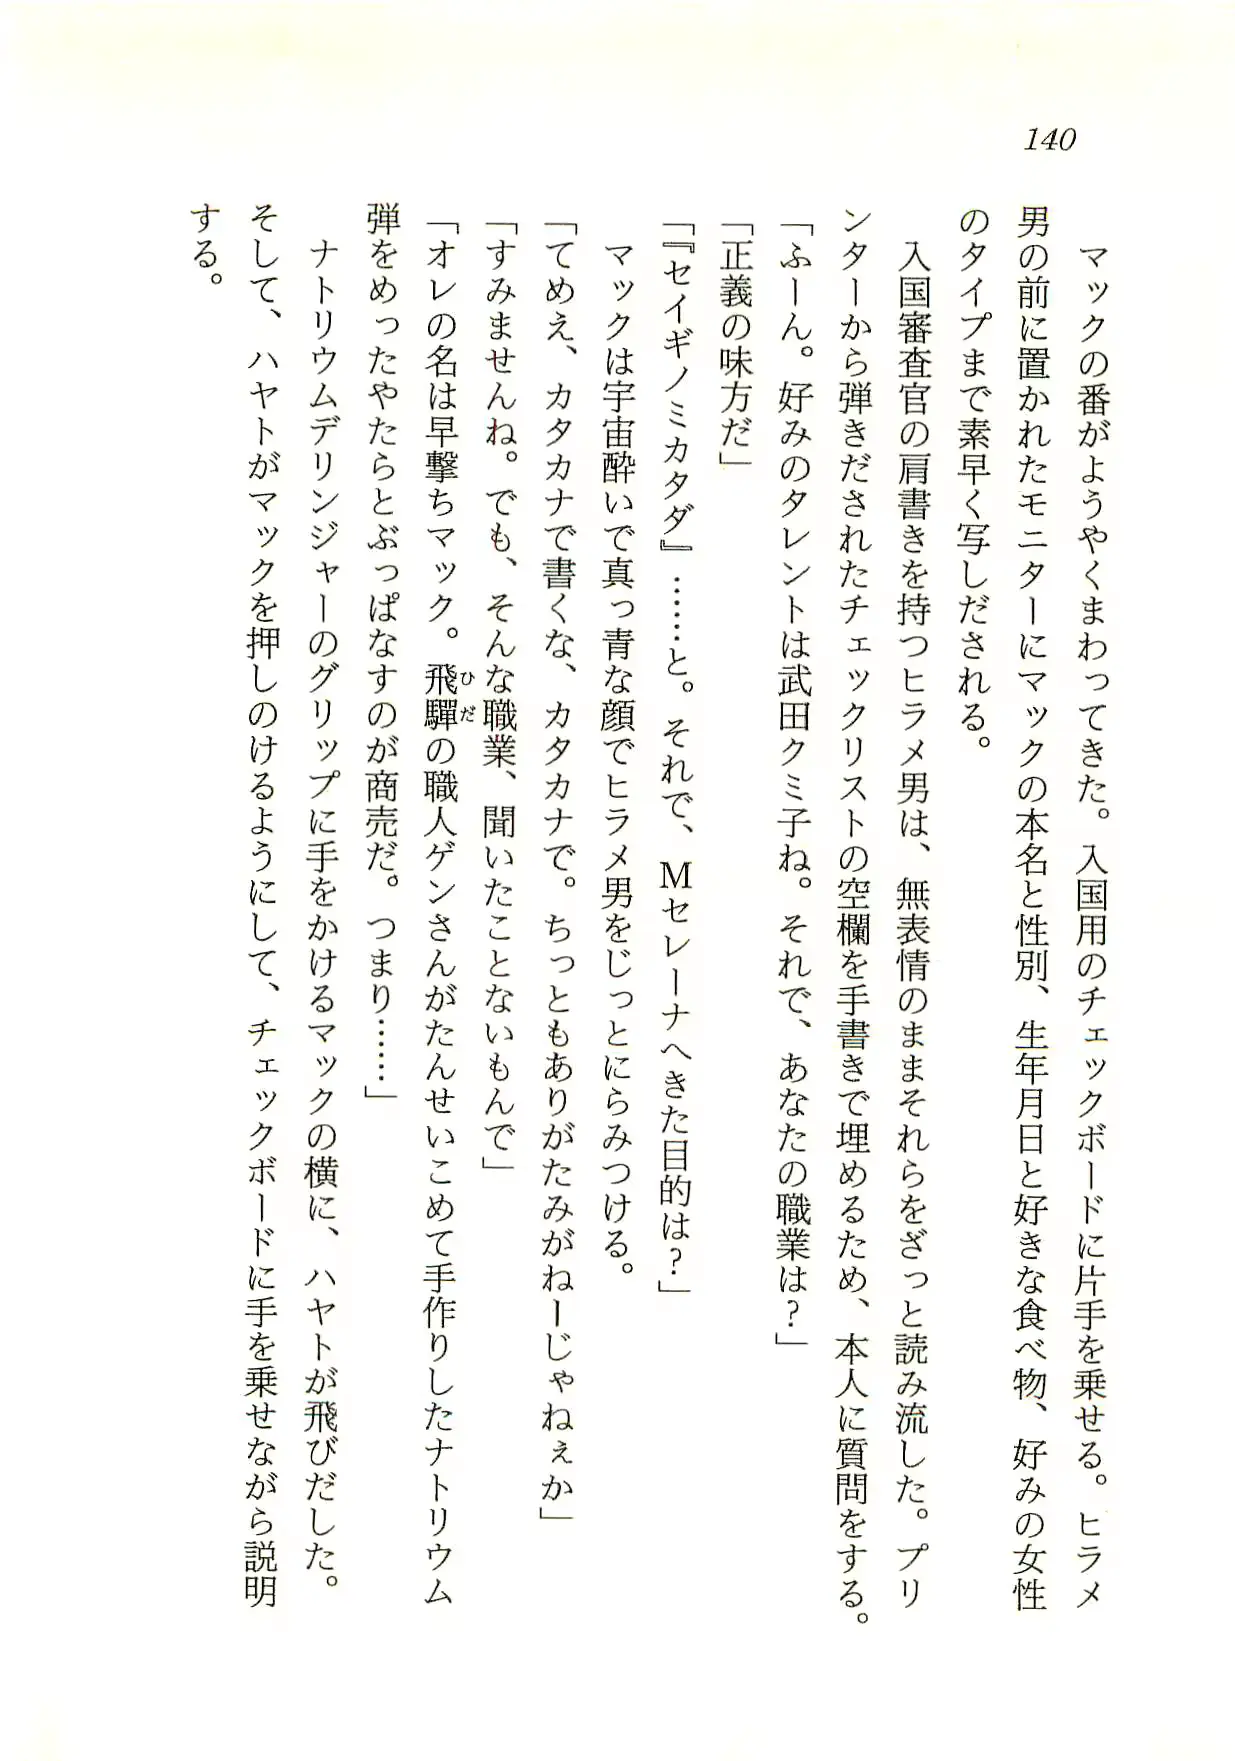 140
　マックの番がようやくまわってきた。入国用のチェックボードに片手を乗せる。ヒラメ
男の前に置かれたモニターにマックの本名と性別、生年月日と好きな食べ物、好みの女性
のタイプまで素早く写しだされる。
　入国審査官の肩書きを持つヒラメ男は、無表情のままそれらをざっと読み流した。プリ
ンターから弾きだされたチェックリストの空欄を手書きで埋めるため、本人に質問をする。
「ふーん。好みのタレントは武田クミ子ね。それで、あなたの職業は？」
「正義の味方だ」
「『セイギノミカタダ』……と。それで、Ｍセレーナへきた目的は？」
　マックは宇宙酔いで真っ青な顔でヒラメ男をじっとにらみつける。
「てめえ、カタカナで書くな、カタカナで。ちっともありがたみがねーじゃねぇか」
「すみませんね。でも、そんな職業、聞いたことないもんで」
「オレの名は早撃ちマック。飛驒ひだの職人ゲンさんがたんせいこめて手作りしたナトリウム
弾をめったやたらとぶっぱなすのが商売だ。つまり……」
　ナトリウムデリンジャーのグリップに手をかけるマックの横に、ハヤトが飛びだした。
そして、ハヤトがマックを押しのけるようにして、チェックボードに手を乗せながら説明
する。